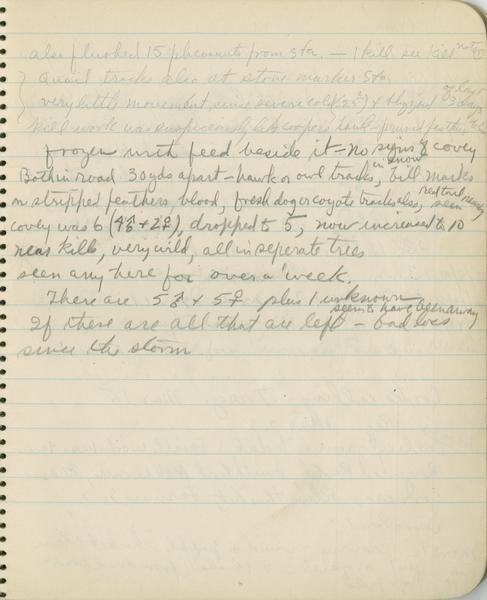 also flushed 15 pheasants from sta. — 1 kill see kill notes
Quail tracks also at stone marker sta.
very little movement since severe cold (25°) & blizzard of last 3 days
kill work was suspiciously like coopers hawk - pruned feathers etc
frozen with feed beside it - no signs of covey
Both in road 30 yds apart - hawk or owl tracks in snow, bill marks
on stripped feathers, blood, fresh dog or coyote tracks also, redtail seen nearby
covey was 6 (4♂ + 2♀), dropped to 5, now increased to 10
near kills, very wild, all in seperate trees
seen any here for over a week.
There are 5♂ + 5♀ plus 1 unknown
seems to have been away
If these are all that are left - bad loss
since the storm.